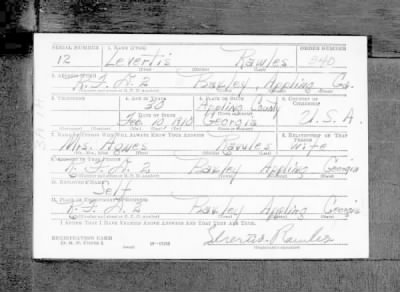 SERIAL NUMBER 1. NAME (Print) ORDER NUMBER
12 Levertis Rawles 240
(First) (Middle) (Last)
2. ADDRESS (Print)
R.F.D. 2 Baxley, Appling Ga.
3. TELEPHONE 4. AGE IN YEARS 5. PLACE OF BIRTH 6. COUNTRY OF CITIZENSHIP
30 Appling County
DATE OF BIRTH
Feb 10 1910 Georgia U.S.A.
7. NAME OF PERSON WHO WILL ALWAYS KNOW YOUR ADDRESS 8. RELATIONSHIP OF THAT PERSON
Mrs. Agnes Rawles Wife
9. ADDRESS OF THAT PERSON
R.F.D. 2 Baxley Appling Georgia
10. EMPLOYER'S NAME
Self
11. PLACE OF EMPLOYMENT OR BUSINESS
R.F.D. 2 Baxley Appling Georgia
I AFFIRM THAT I HAVE VERIFIED ABOVE ANSWERS AND THAT THEY ARE TRUE.
REGISTRATION CARD
D. S. S. FORM 1 Rawles